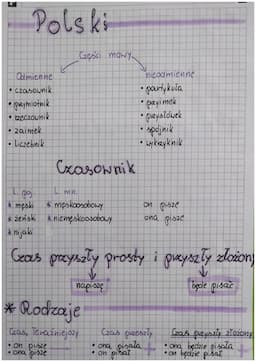 Polski
Części mowy
Odmienne nieodmienne
• czasownik • partykuła
• przymiotnik • przyimek
• rzeczownik • przysłówek
• zaimek • spójnik
• liczebnik • wykrzyknik
Czasownik
L. poj. L. mn.
męski męskoosobowy on pisze
żeński niemęskoosobowy ona pisze
nijaki
Czas przyszły prosty i przyszły złożony
napiszę będę pisać
* Rodzaje
Czas teraźniejszy Czas przeszły Czas przyszły złożony
• on pisze • ona pisała • ona będzie pisała
• ona pisze • on pisał • on będzie pisał